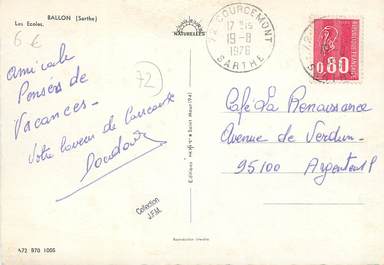 BALLON (Sarthe)
Les Ecoles.
6 €
72
NATURELLES
72 COURCEMONT
17 H 15
19-8
1976
SARTHE
REPUBLIQUE FRANCAISE
0.80
amicale
Pensées de
Vacances -
Votre laveur de
Café La Renaissance
Avenue de Verdun
95100 Argenteuil
Collection
J.F.M.
Reproduction interdite
472 970 1005